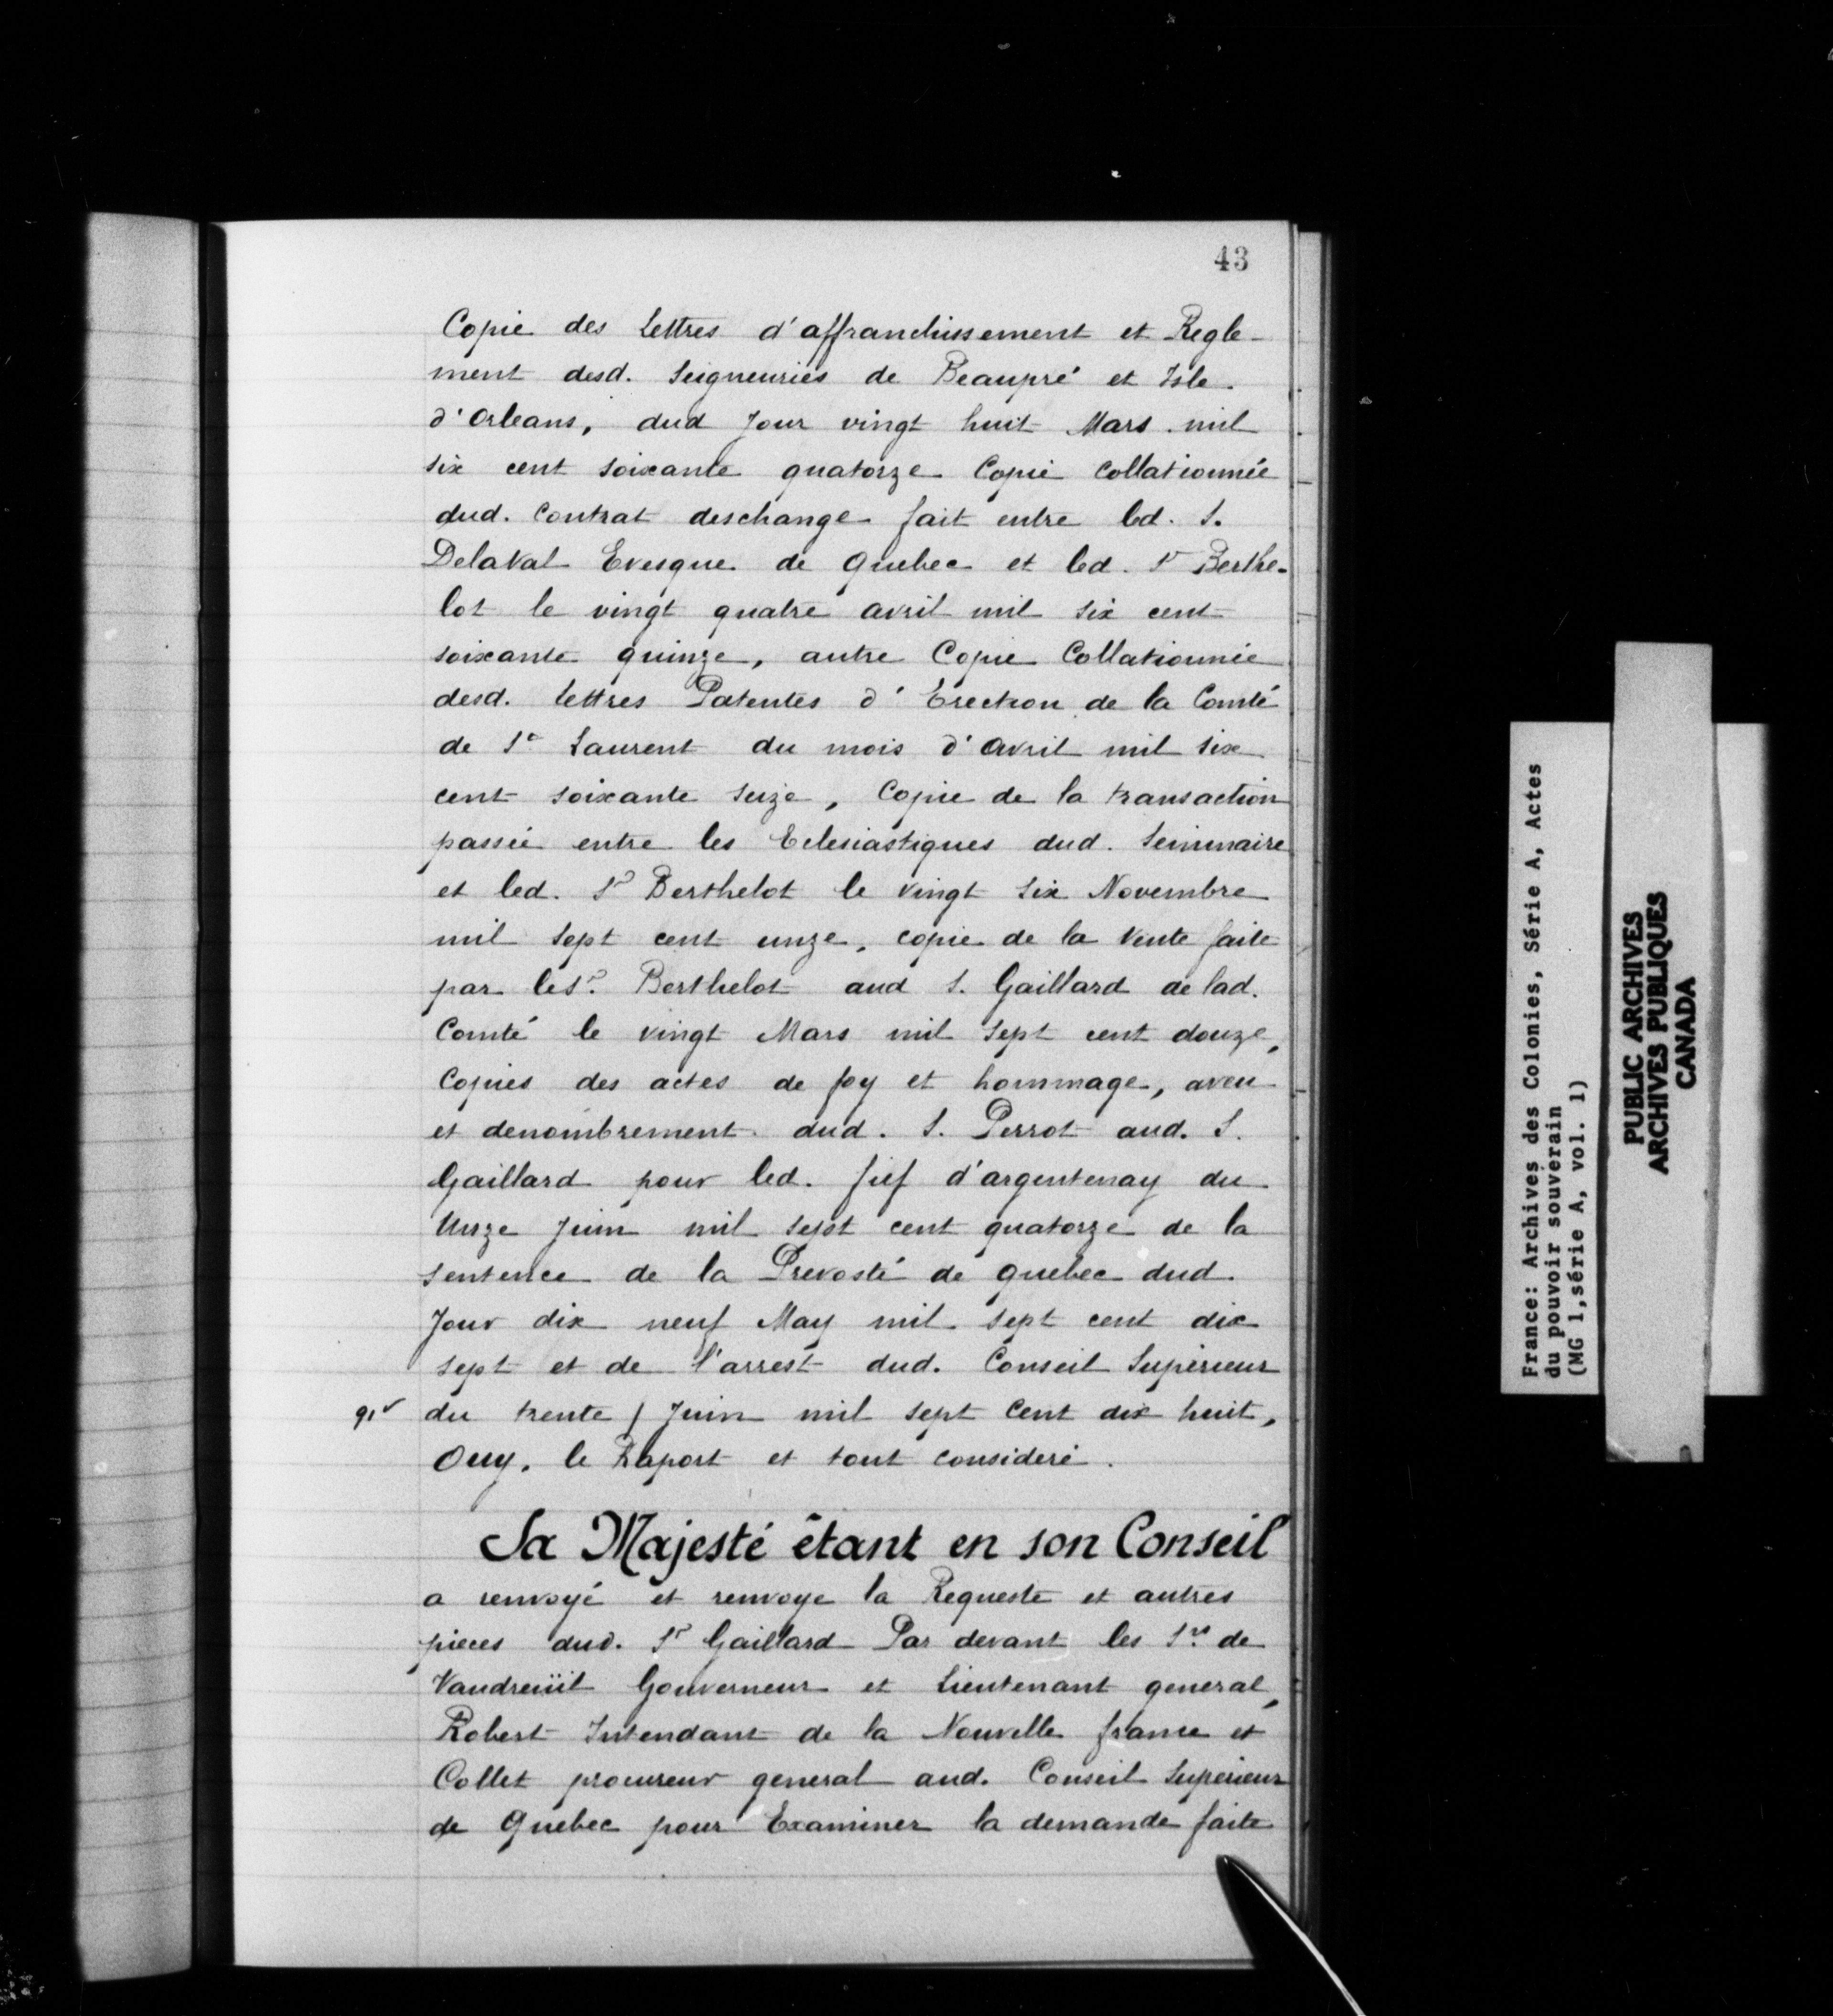 43
Copie des Lettres d'affranchissement et Regle-
ment desd. Seigneuries de Beaupré et Isle.
d'Orleans, dud Jour vingt huit Mars mil
six cent soixante quatorze Copie collationnée
dud. Contrat deschange fait entre led. S.
Delaval Evesque de Quebec et led. Sr Berthe-
lot le vingt quatre avril mil six cent
soixante quinze, autre Copie Collationnée
desd. Lettres Patentes d'Erection de la Comté
de St Laurent du mois d'avril mil six
cent soixante seize, Copie de la transaction
passée entre les Eclesiastiques dud. Seminaire
et led. Sr Berthelot le vingt six Novembre
mil sept cent unze, copie de la vente faite
par le Sr. Berthelot aud S. Gaillard de lad.
Comté le vingt Mars mil sept cent douze,
Copies des actes de foy et hommage, aveu
et denombrement dud. S. Perrot aud. S.
Gaillard pour led. fief d'argentenay du
Unze juin mil sept cent quatorze de la
sentence de la Prevosté de quebec dud.
Jour dix neuf May mil sept cent dix
sept et de l'arrest dud. Conseil Superieur
91v du trente / Juin mil sept Cent dix huit,
Ouy, le Raport et tout consideré.
Sa Majesté étant en son Conseil
a renvoyé et renvoye la Requeste et autres
pieces dud. Sr Gaillard Par devant les Srs de
Vaudreüil Gouverneur et Lieutenant general,
Robert Intendant de la Nouvelle france et
Collet procureur general aud. Conseil Superieur
de Quebec pour Examiner la demande faite
France: Archives des Colonies, Série A, Actes
du pouvoir souverain
(MG 1,série A, vol. 1)
PUBLIC ARCHIVES
ARCHIVES PUBLIQUES
CANADA